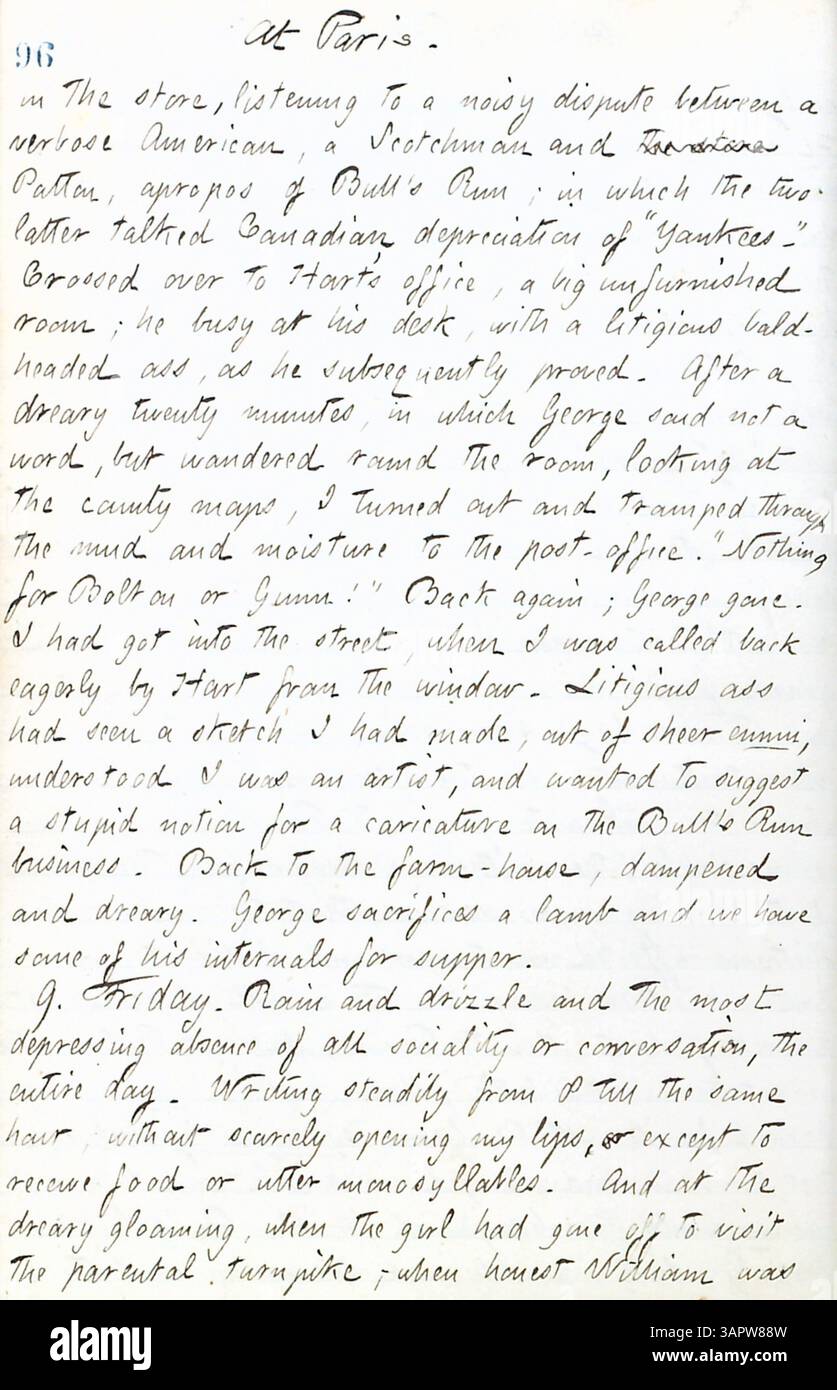 At Paris.
96
in the store, listening to a noisy dispute between a
verbose American, a Scotchman and the store
Patton, apropos of Bull's Run; in which the two
latter talked Canadian depreciation of "Yankees."
Crossed over to Hart's office, a big unfurnished
room; he busy at his desk, with a litigious bald-
headed ass, as he subsequently proved. After a
dreary twenty minutes, in which George said not a
word, but wandered round the room, looking at
the county maps, I turned out and tramped through
the mud and moisture to the post-office. "Nothing
for Bolton or Gunn!" Back again; George gone.
I had got into the street, when I was called back
eagerly by Hart from the window. Litigious ass
had seen a sketch I had made, out of sheer ennui,
understood I was an artist, and wanted to suggest
a stupid notion for a caricature on the Bull's Run
business. Back to the farm-house, dampened
and dreary. George sacrifices a lamb and we have
some of his internals for supper.
9. Friday. Rain and drizzle and the most
depressing absence of all sociality or conversation, the
entire day. Writing steadily from 8 till the same
hour, without scarcely opening my lips, or except to
receive food or utter monosyllables. And at the
dreary gloaming, when the girl had gone off to visit
the parental turnpike; when honest William was
alamy
Image ID: 3APW88W
www.alamy.com